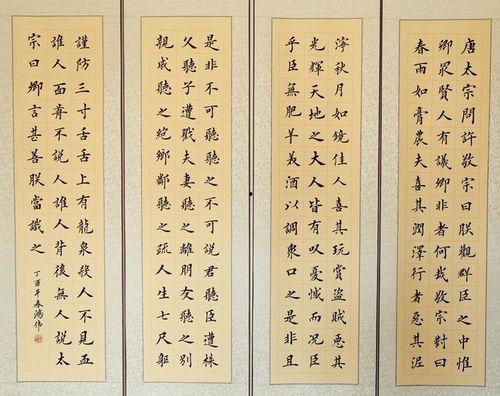 唐太宗問許敬宗曰朕觀群臣之中惟
卿最賢人有議卿非者何哉敬宗對曰
春雨如膏農夫喜其潤澤行者惡其泥
濘秋月如鏡佳人喜其玩賞盜賊惡其
光輝天地之大人皆有以憂憾而況臣
乎臣無肥羊美酒以調衆口之是非且
是非不可聽聽之不可說君聽臣遭株
父聽子遭戮夫妻聽之離朋友聽之別
親戚聽之絕鄉鄰聽之疏人生七尺軀
謹防三寸舌舌上有龍泉殺人不見血
誰人面前不說人誰人背後無人說太
宗曰卿言甚善朕當識之
丁酉年春鴻偉